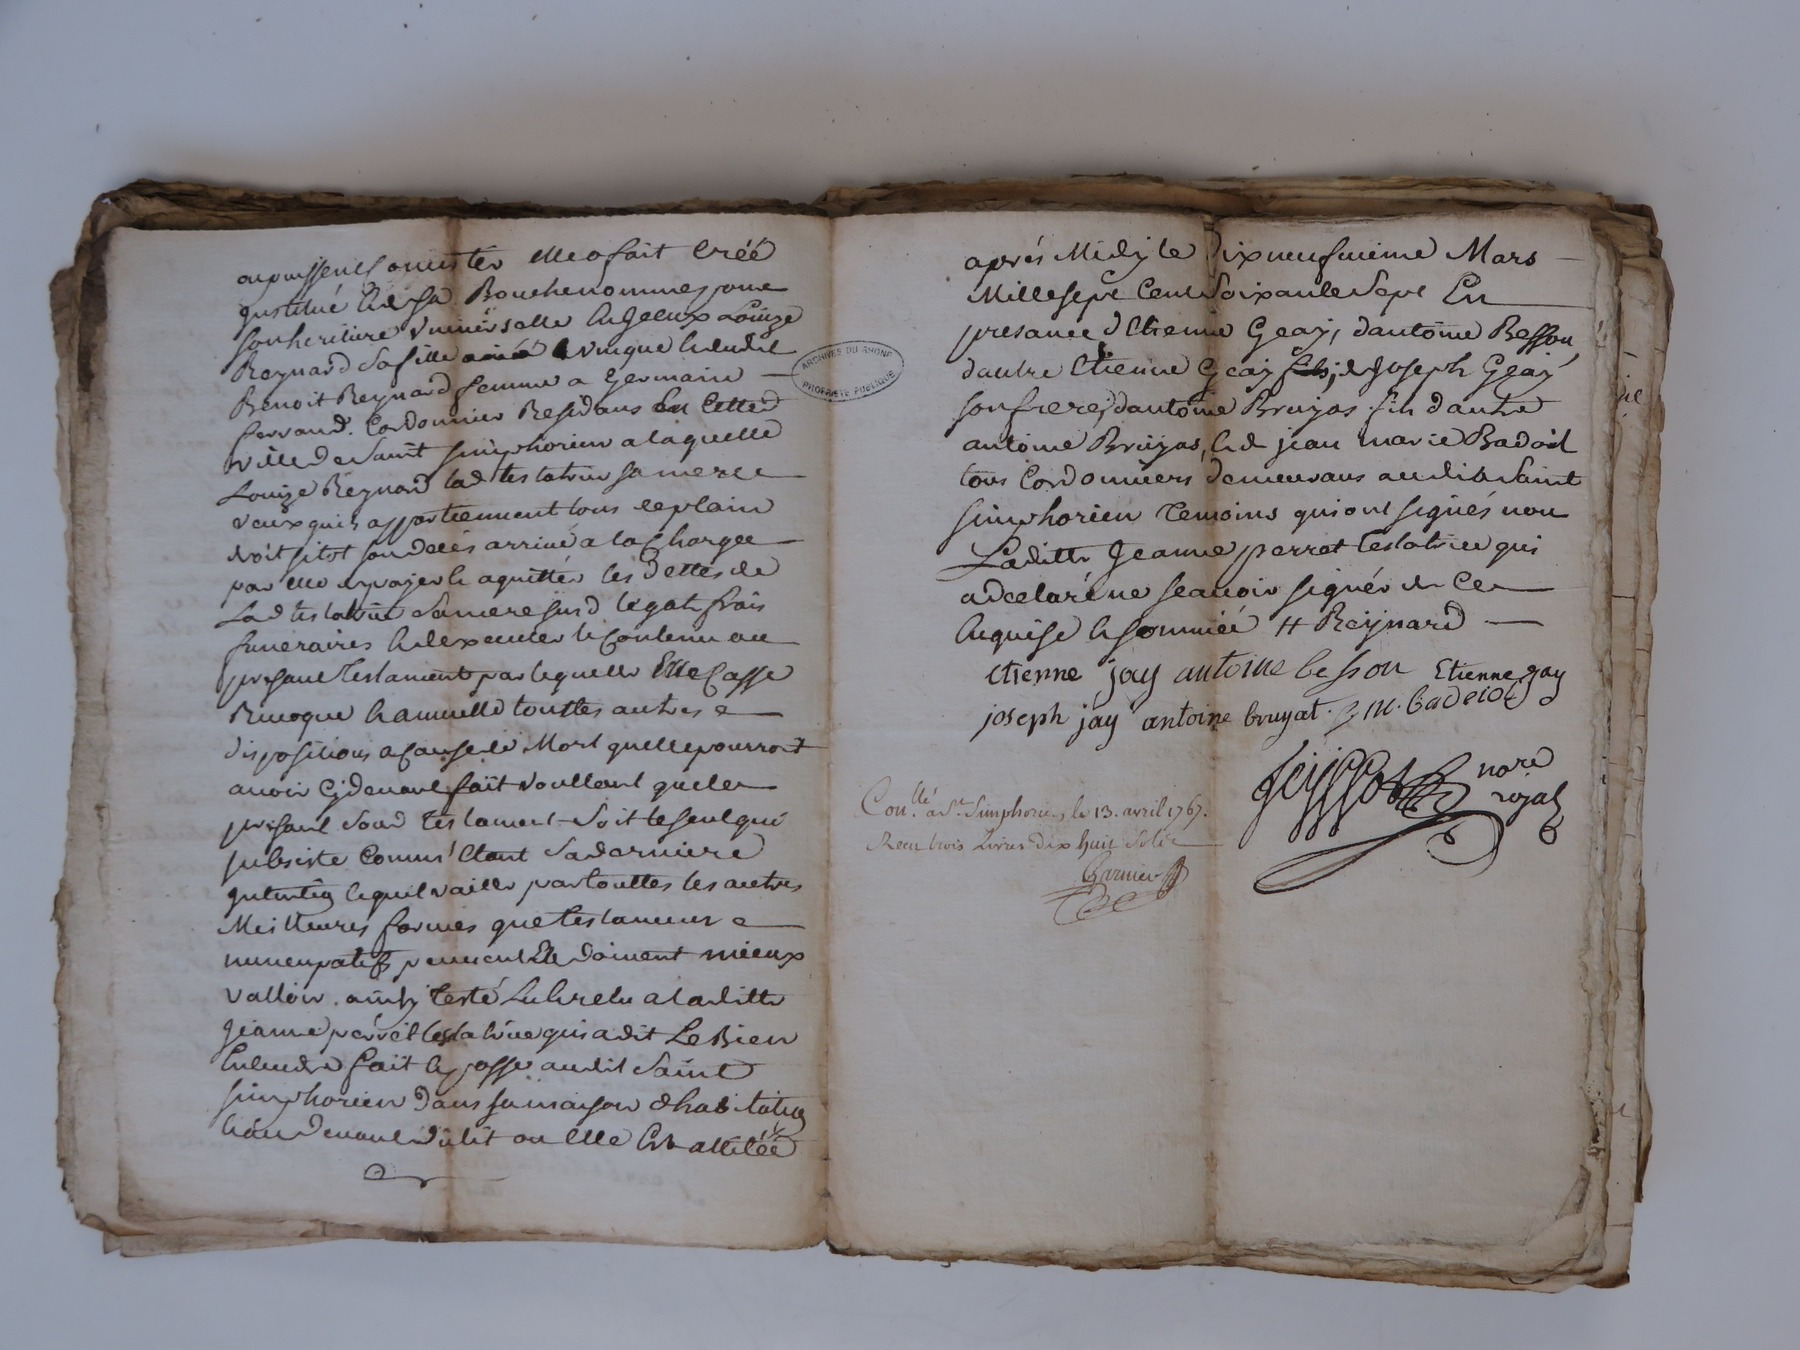 ou puissent consister elle a fait créé
jnstitué et de sa Bouche nommé pour
son heritiere universelle et generale Louize
Reynard sa fille unique et dudit
Benoit Reynard femme a Germain
ferrand Cordonnier Residans en cette
ville de Saint simphorien a laquelle
Louize Reynard lad testatrice sa mere
veux quils appartiennent tous de plain
droit sitot son deces arrivé a la Charge
par elle de payer et aquitter les dettes de
Lad testatrice sa mere susd legats frais
funeraires et dexecuter le Contenu au
presant Testament par lequelle Elle Casse
Revoque et annulle touttes autres
dispositions a cause de Mort quelle pourroit
avoir Cydevant fait voullant que le
presant soud testament soit le seul qui
subsiste Comme Etant sa darniere
jntention lequel vaille par touttes les autres
Meilleures formes que testament
nuncupatifs peuvent Et doivent mieux
valloir. ainsy Testé Lu et relu a laditte
jeanne perret testatrice qui a dit Le Bien
Entendre fait et passé audit Saint
simphorien dans sa maison d'habitation
au devant du lit ou Elle Est allitéé
ARCHIVES DU RHONE
PROPRIETE PUBLIQUE
aprés Midy le Dix neufvieme Mars
Mille sept Cent Soixante Sept En
presance d'Etienne Geay, d'antoine Besson
d'autre Etienne Geay fils, de Joseph Geay
son frere, d'antoine Bruyas fils d'autre
antoine Bruyas, et de jean marie Badoil
tous Cordonniers demeurans audit Saint
simphorien temoins qui ont signés non
Laditte Jeanne perret testatrice qui
a declaré ne scavoir signér de Ce
Enquise et somméé # Reynard
Etienne jay antoine besson Etienne gay
joseph jay antoine bruyat. j m. badoiol
nore
royal
Conllé. a St. Simphorien, le 13. avril 1767.
Recu trois Livres dix huit sols
Garnier